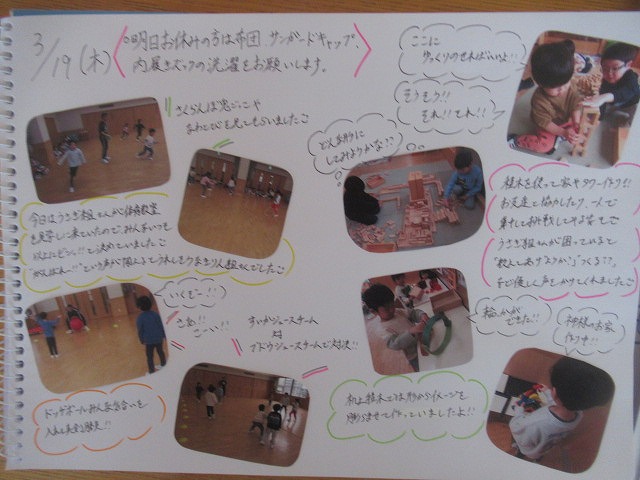 3/19(木)
◎明日お休みの方は布団、サンガードキャップ、
内履きズックの洗濯をお願いします。
さくらんぼ鬼ごっこや
なわとびを見てもらいましたこ
今日はうさぎ組さんが体育教室
を見学に来ていたので、みんないつも
以上にビシッ!!と決めていましたこ
"がんばれー!!"という声が聞こえてうれしそうなきりん組さんでしたこ
いくぞー!!
さあ!!
こーい!!
ドッヂボールみんな気合いを
入れて真剣勝負!!
すいかジュースチーム
対
ブドウジュースチームで対決!!
どんな形に
してみようかな??
ここに
ゆっくりのせればいいよ!!
そうそう!!
それ!!それ!!
積木を使って家やタワー作り!!
お友達と協力したり、一人で
黙々と挑戦してみる姿もこ
うさぎ組さんが困っていると
"教えてあげようか?""つくる??"
など優しく声をかけてくれましたこ
輪っかが
できた!!
神様のお家
作り中!!
机上積木では形からイメージを
膨らませて作っていましたよ!!